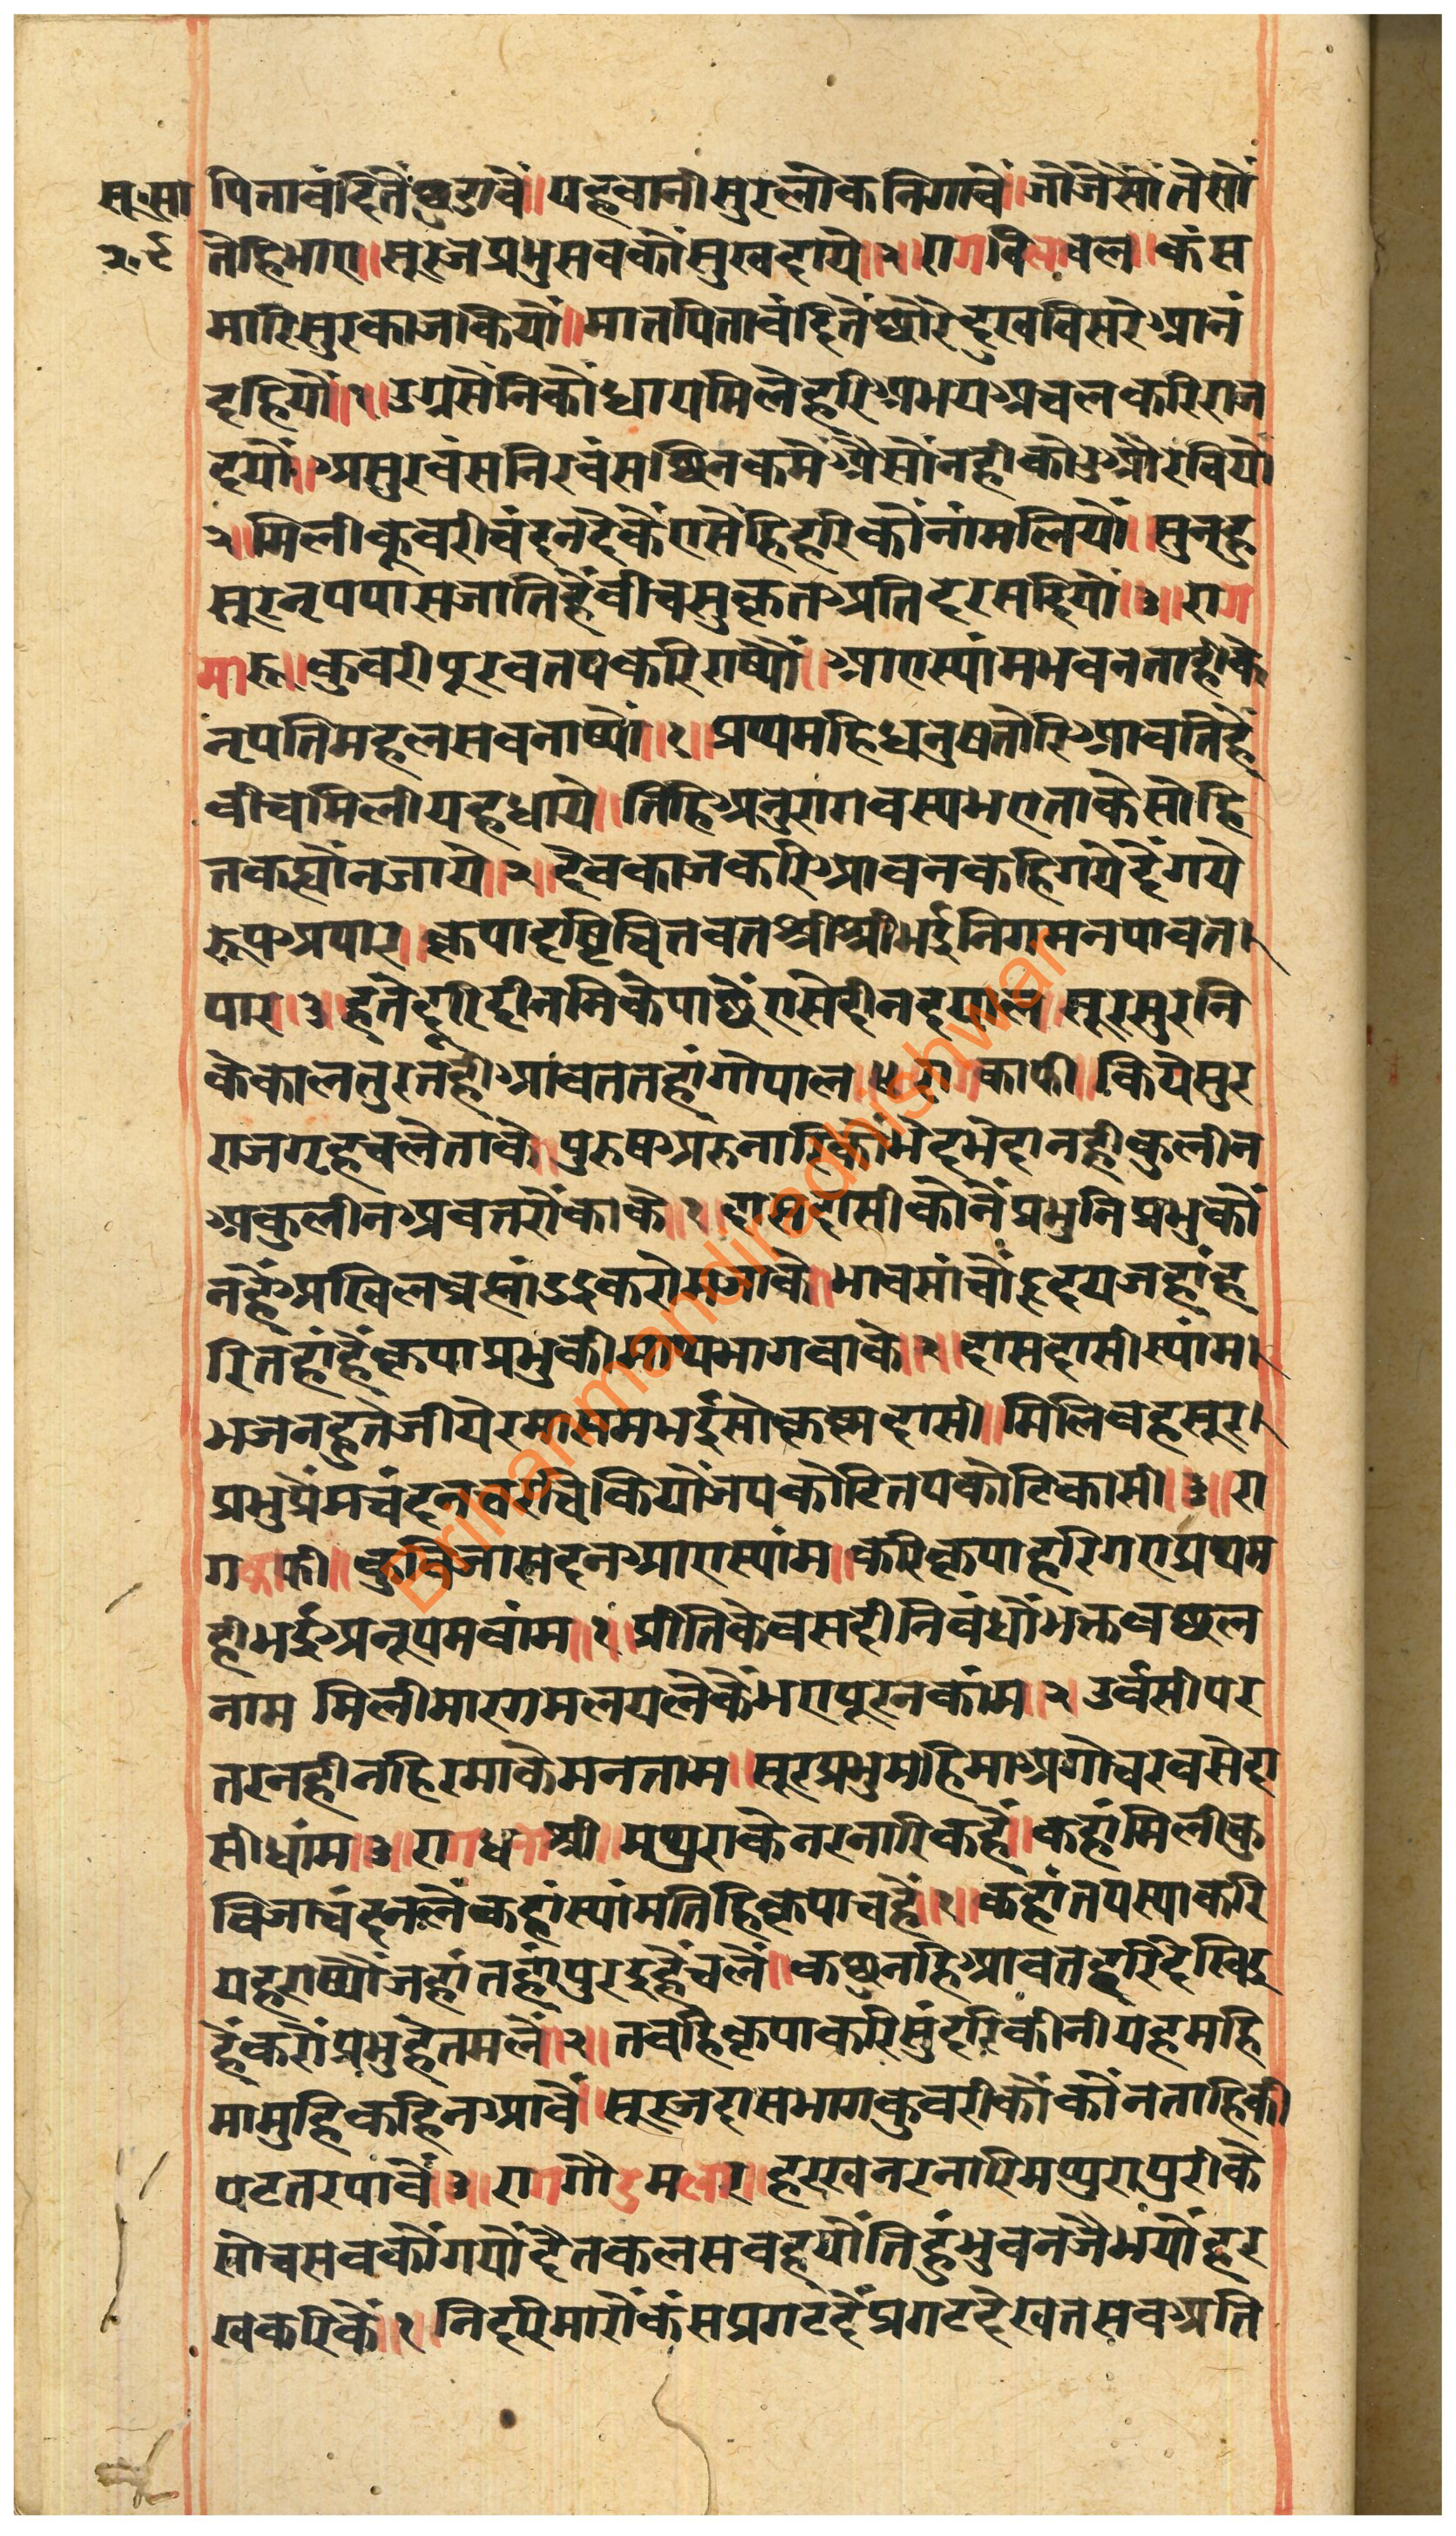 सू.सा पितावंदितें छुडावें॥ यहवानी सुरलोकनिगावें॥ जोजैसोंतैसों
२८ तेहिभाए॥ सूरजप्रभुसबकोंसुखदाये॥२॥ रागबिलावल॥ कंस
मारिसुरकाजकियों॥ मातपितावंदितेंछोरेदुखबिसरेआनं
दहियों॥१॥ उग्रसेनिकोंधायमिलेहरिअभयअचलकरिराज
दयों॥ असुरबंसनिरबंसछिनकमेंअैसोंनहीकोउऔरबियों
२॥ मिलीकूबरीचंदनदैकेंएसेंहिहरिकोंनांमलियों॥ सुनहु
सूरनृपपासजातिहेंबीचसुकृतअतिदरसदियों॥३॥ राग
मारू॥ कुबरीपूरबतपकरिराष्यों॥ आएस्यांमभवनताहीके
नृपतिमहलसबनाष्यों॥१॥ प्रथमहिधनुषतोरिआवतिहें
बीचमिलीयहधाये॥ तिहिअनुरागबस्यभएताकेसोहि
तकह्योंनजाये॥२॥ देवकाजकरिआवनकहिगयेदेंगये
रूपअपार॥ कृपादृष्टिचितवतश्रीश्रीभईनिगमनपावत।
पार॥३॥ हमतेदूरिदीनमिकेपाछेंएसेदीनदयाल॥ सूरसुरनि
केकालतुरतहीआंवततहांगोपाल॥४॥ रागकाफी॥ कियेसुर
राजगृहचलेताके॥ पुरुषअरुनारिकोंभेदभेदानहीकुलीन
अकुलीनअवतरोंकाके॥१॥ दासदासीकोनेंप्रभुनिप्रभुकों
नहेंअखिलब्रह्मांडइकरोमजाके॥ भावसांचोंहृदयजहांह
रितहांहेंकृपाप्रभुकीमाथभागवाके॥२॥ दासदासीस्यांम।
भजनहुतेजीयेरमासमभईसोकृष्नदासी॥ मिलिवहसूर।
प्रभुप्रेंमचंदनचरचिकियोंजपकोटितपकोटिकासी॥३॥ रा
गकाफी॥ कुबिजासदनआएस्यांम॥ करिकृपाहरिगएप्रथम
हीभईअनूपमबांम॥१॥ प्रीतिकेबसदीनिबंधोंभक्तबछल
नाम मिलीमारगमलयलेकेंभएपूरनकांम॥२ उर्वसीपर
तरनहीनहिरमाकेमनताम॥ सूरप्रभुमहिमाअगोचरबसेदा
सीधांम॥३॥ रागधनाश्री॥ मथुराकेनरनारिकहें॥ कहांमिलीकु
बिजाचंदनलेंकहांस्यांमतिहिकृपाचहें॥१॥ कहांतपस्याकरि
यहराष्योंजहांतहांपुरइहेंचलें॥ कछुनहिआवतहरिदेखिइ
हेंकरोंप्रभुहेतमलें॥२॥ तबहिकृपाकरिसुंदरिकीनीयहमहि
मामुहिकहिनआवें॥ सूरजदासभागकुबरीकोंकोंनताहिकी
पटतरपावें॥३॥ रागगौडमलार॥ हरखनरनारिमथुरापुरीके
सोचसबकोंगयोंदैतकलसबहयोंतिहुंभुवनजैभयोंहर
खकरिकें॥१॥ निदरिमारोंकंसप्रगटहेंप्रगटदेखतसबअति